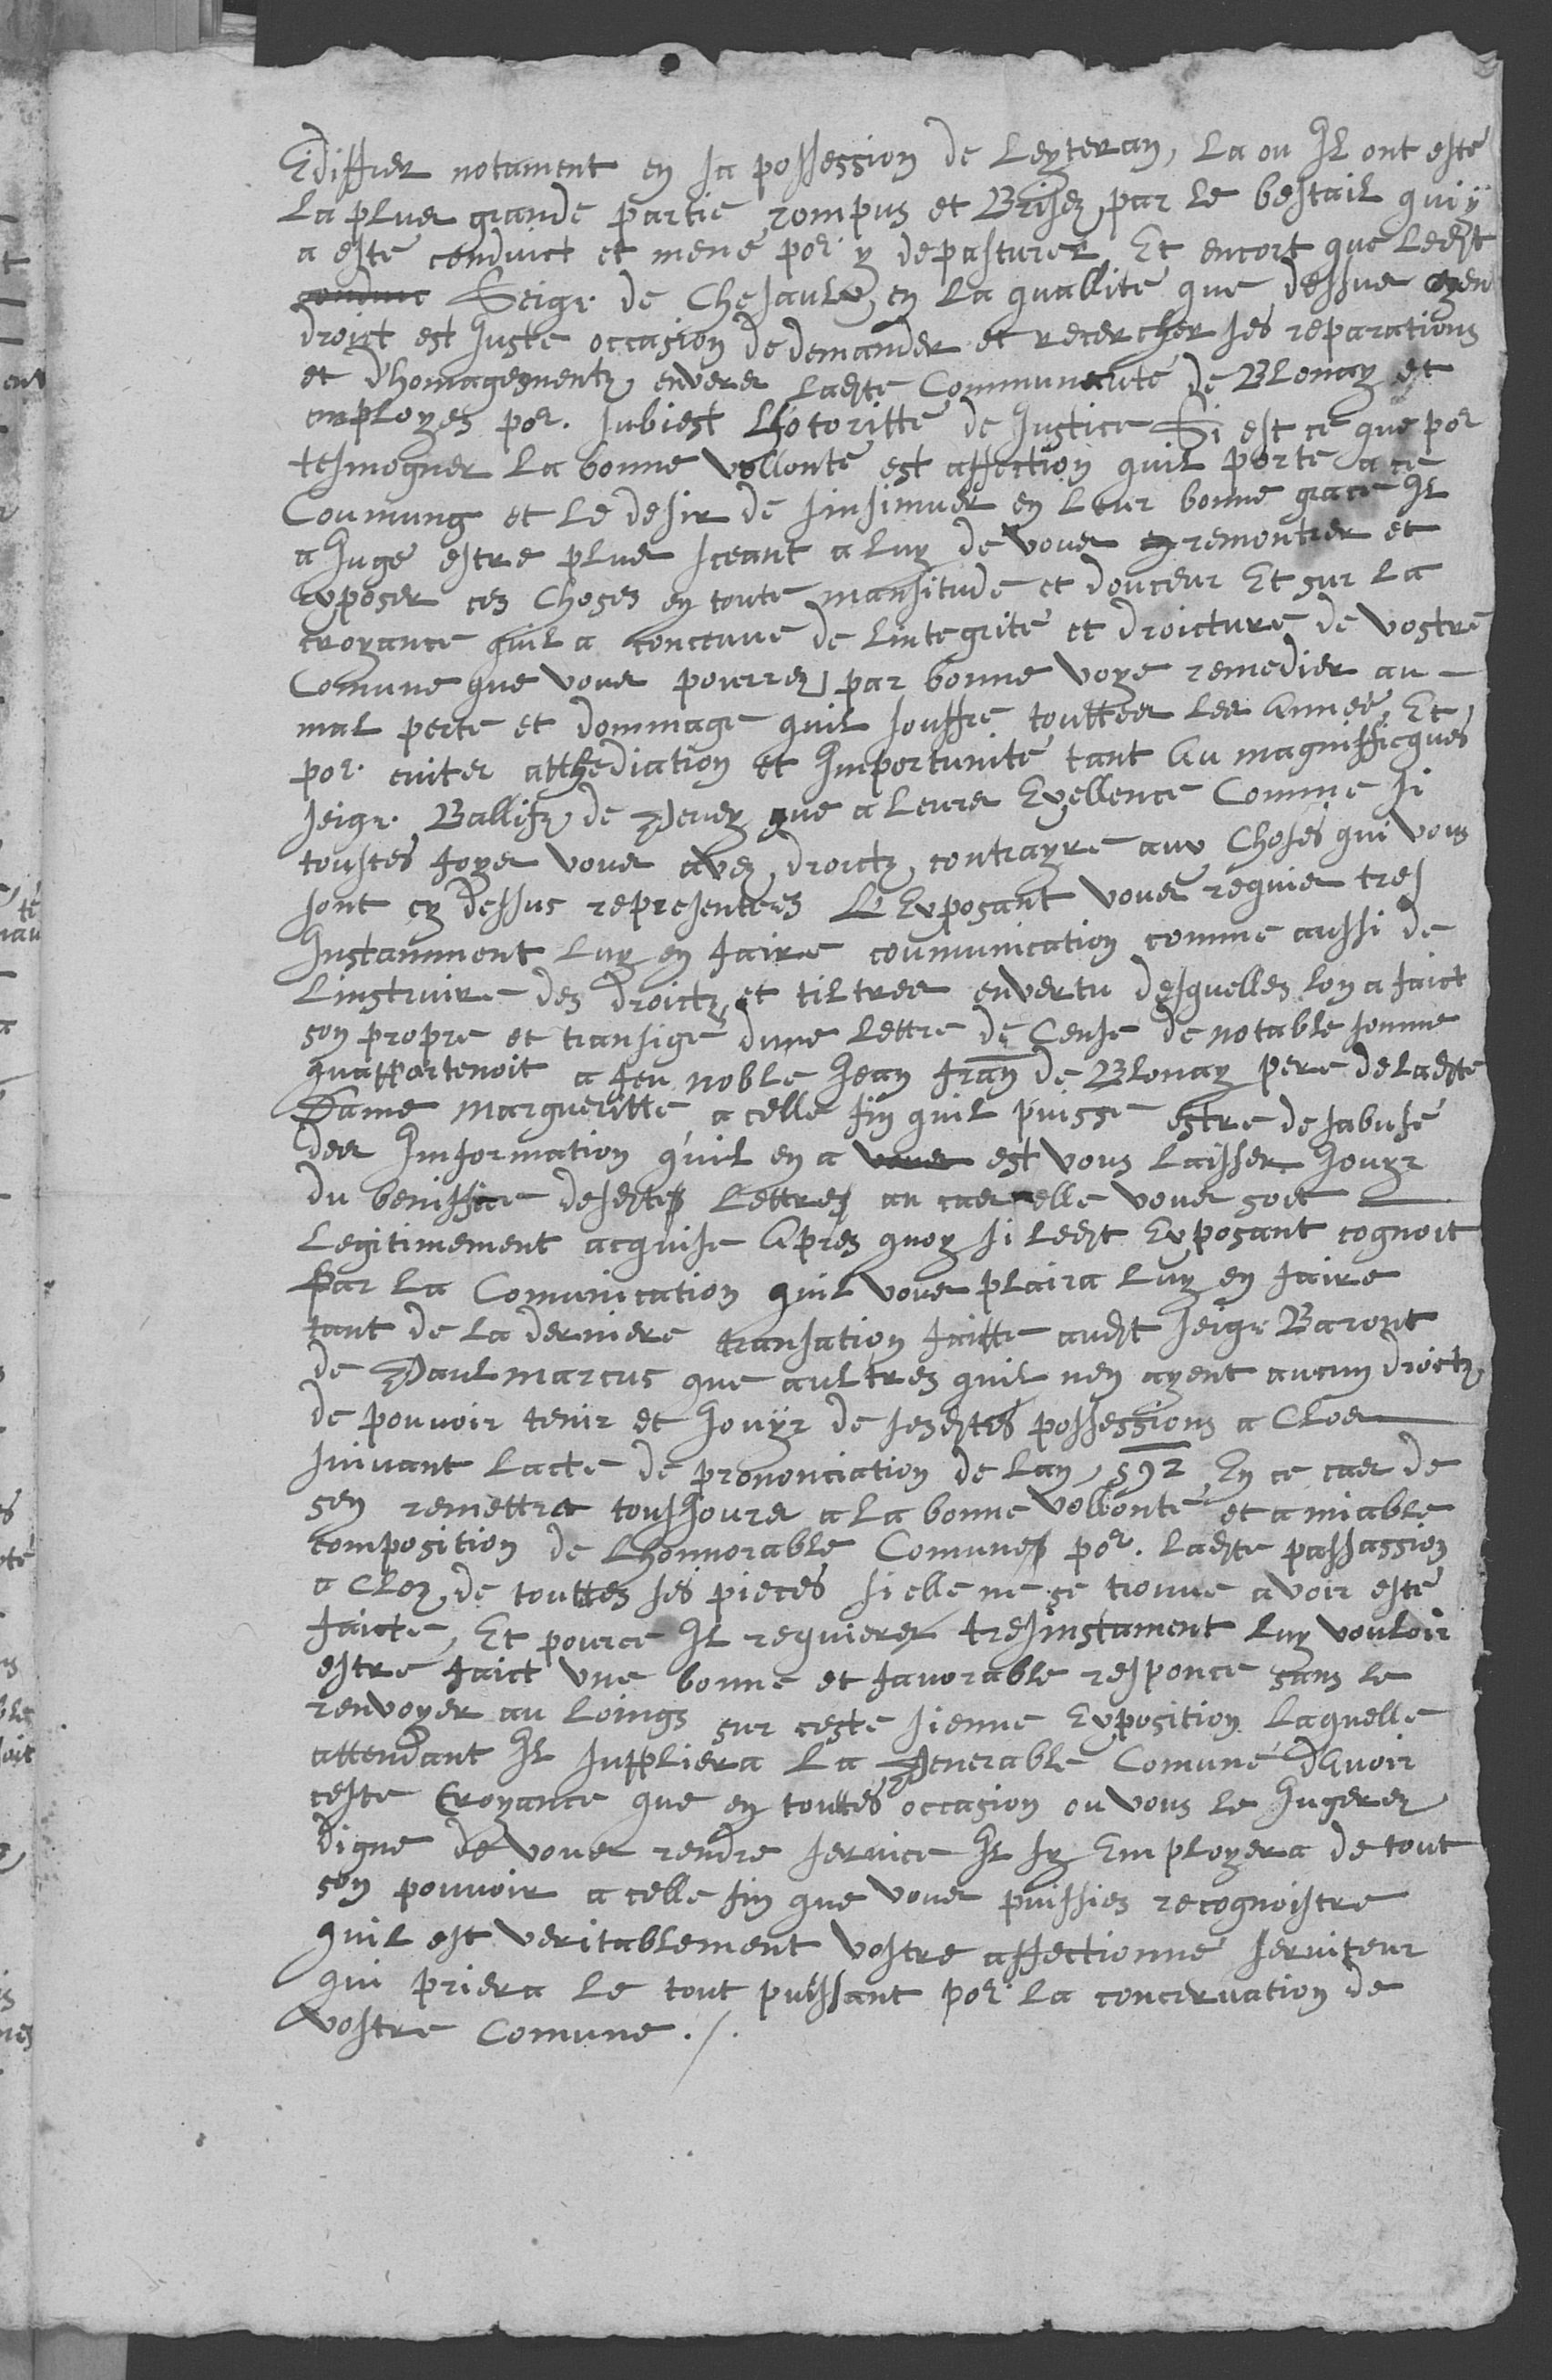 Ediffier notament en sa possession de Leyteran, La ou Il ont esté
La plus grande partie rompus et Brisez par le bestail qui ÿ
a esté conduict et mené por y depasturer Et encort que Ledit
conduic Seigr de Chesaulx, en La quallité que dessus ayen
droict est Juste occasion de demander et recercher ses reparations
et dhomagementz envers Ladite Communeauté de Blonay et
employez por. subiest Lhotoritté de Justice Si est ce que por
tesmogner La bonne vollonté est affection quil porte a ce
Coumung et Le desir de sinsinuer en Leur bonne grace Il
a Jugé estre plus sceant a luy de vous remontrer et
Exposer ces choses en toute mansitude et douceur Et sur La
croyance quil a conceuue de Lintegrité et droicture de vostre
Comune que vous pourrez par bonne voye remedier au
mal perte et dommage quil souffre touttes Les Année, Et
por. eviter atthediation et Importunité tant Au magnifficques
seigr. Ballifz de Vevey que a Leurs Exellence Comme si
toustes foyes vous avez droictz contrayre aux choses qui vous
sont cy dessus representees L Exposant vous requier tres
Instamment Luy en faire coumunication comme aussi de
Linstruire des droictz et tiltres envertu desquelles lon a faict
son propre et transigé dune Lettre de Cense de notable somme
quappartenoit a feu noble Jean fran de Blonay pere de Ladite
Dame margueritte a celle fin quil puisse estre desabusé
des Information quil en a vous est vous Laisser Jouyr
du beniffice desdites Lettres au cas elle vous soit
Legitimement acquise Apres quoy si Ledit Exposant cognoit
Par La Comunication quil vous plaira Luy en faire
tant de La derniere transation faitte audit seigr Baront
de Paul marcus que aultres quil nen ayent aucun droictz
de pouvoir tenir et Jouÿr de sesdites possessions a Clos
suivant Lacte de prononciation de Lan 592 En ce cas de
sen remettre tousJours a La bonne vollonté et amiable
composition de Lhonnorable Comune por. Ladite passassion
a Cloz de touttes ses pieces si elle ne se trouve avoir esté
faicte, Et pource Il requierer tresinstament Luy vouloir
estre faict une bonne et favorable responce sans le
renvoyer au Loings sur ceste sienne Exposition Laquelle
attendant Il suppliera La Venerable Comune dAvoir
ceste Croyance que en touttes occasion ou vous le Jugerez
digne de vous rendre service Il sy Employera de tout
son pouvoir a celle fin que vous puissiez recognoistre
quil est veritablement vostre affectionné serviteur
qui priera Le tout puissant por la concervation de
vostre Comune ./.